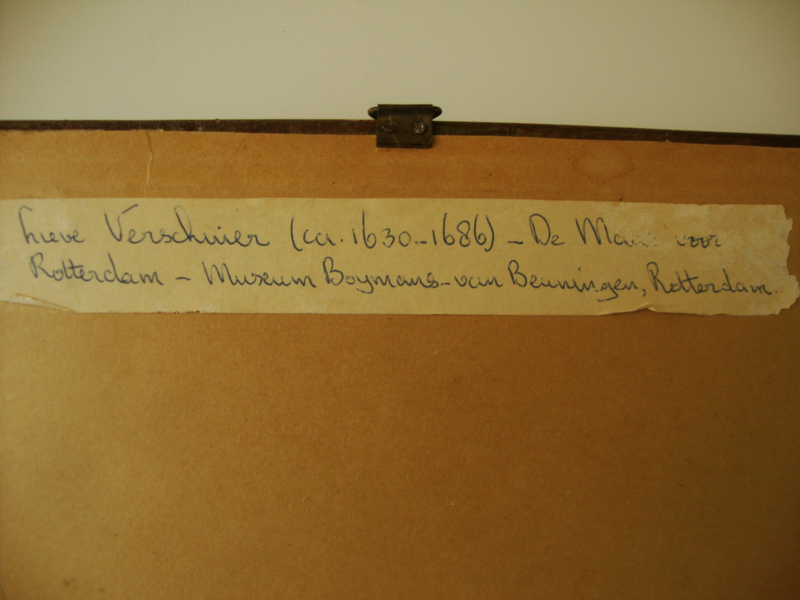 Lieve Verschuier (ca. 1630-1686) - De Maas voor
Rotterdam - Museum Boymans-van Beuningen, Rotterdam.